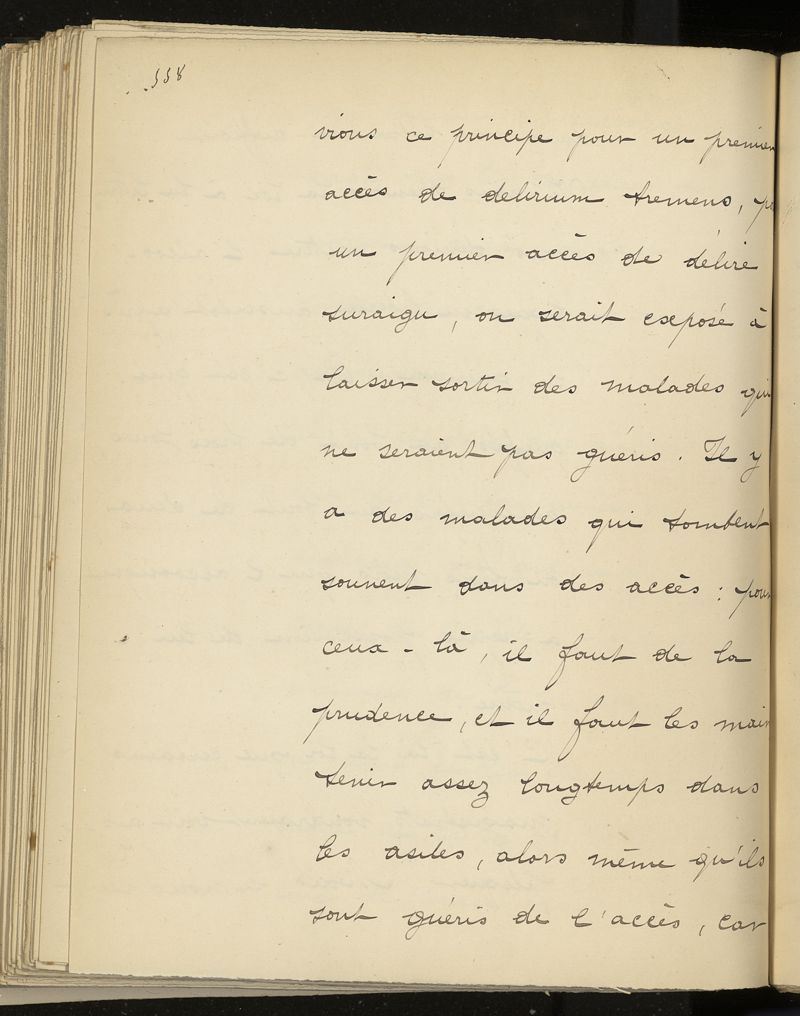 558
vions ce principe pour un premier
accès de delirium tremens,
un premier accès de délire
suraigu, on serait exposé à
laisser sortir des malades qui
ne seraient pas guéris. Il y
a des malades qui tombent
souvent dans des accès : pour
ceux-là, il faut de la
prudence, et il faut les main
tenir assez longtemps dans
les asiles, alors même qu'ils
sont guéris de l'accès, car